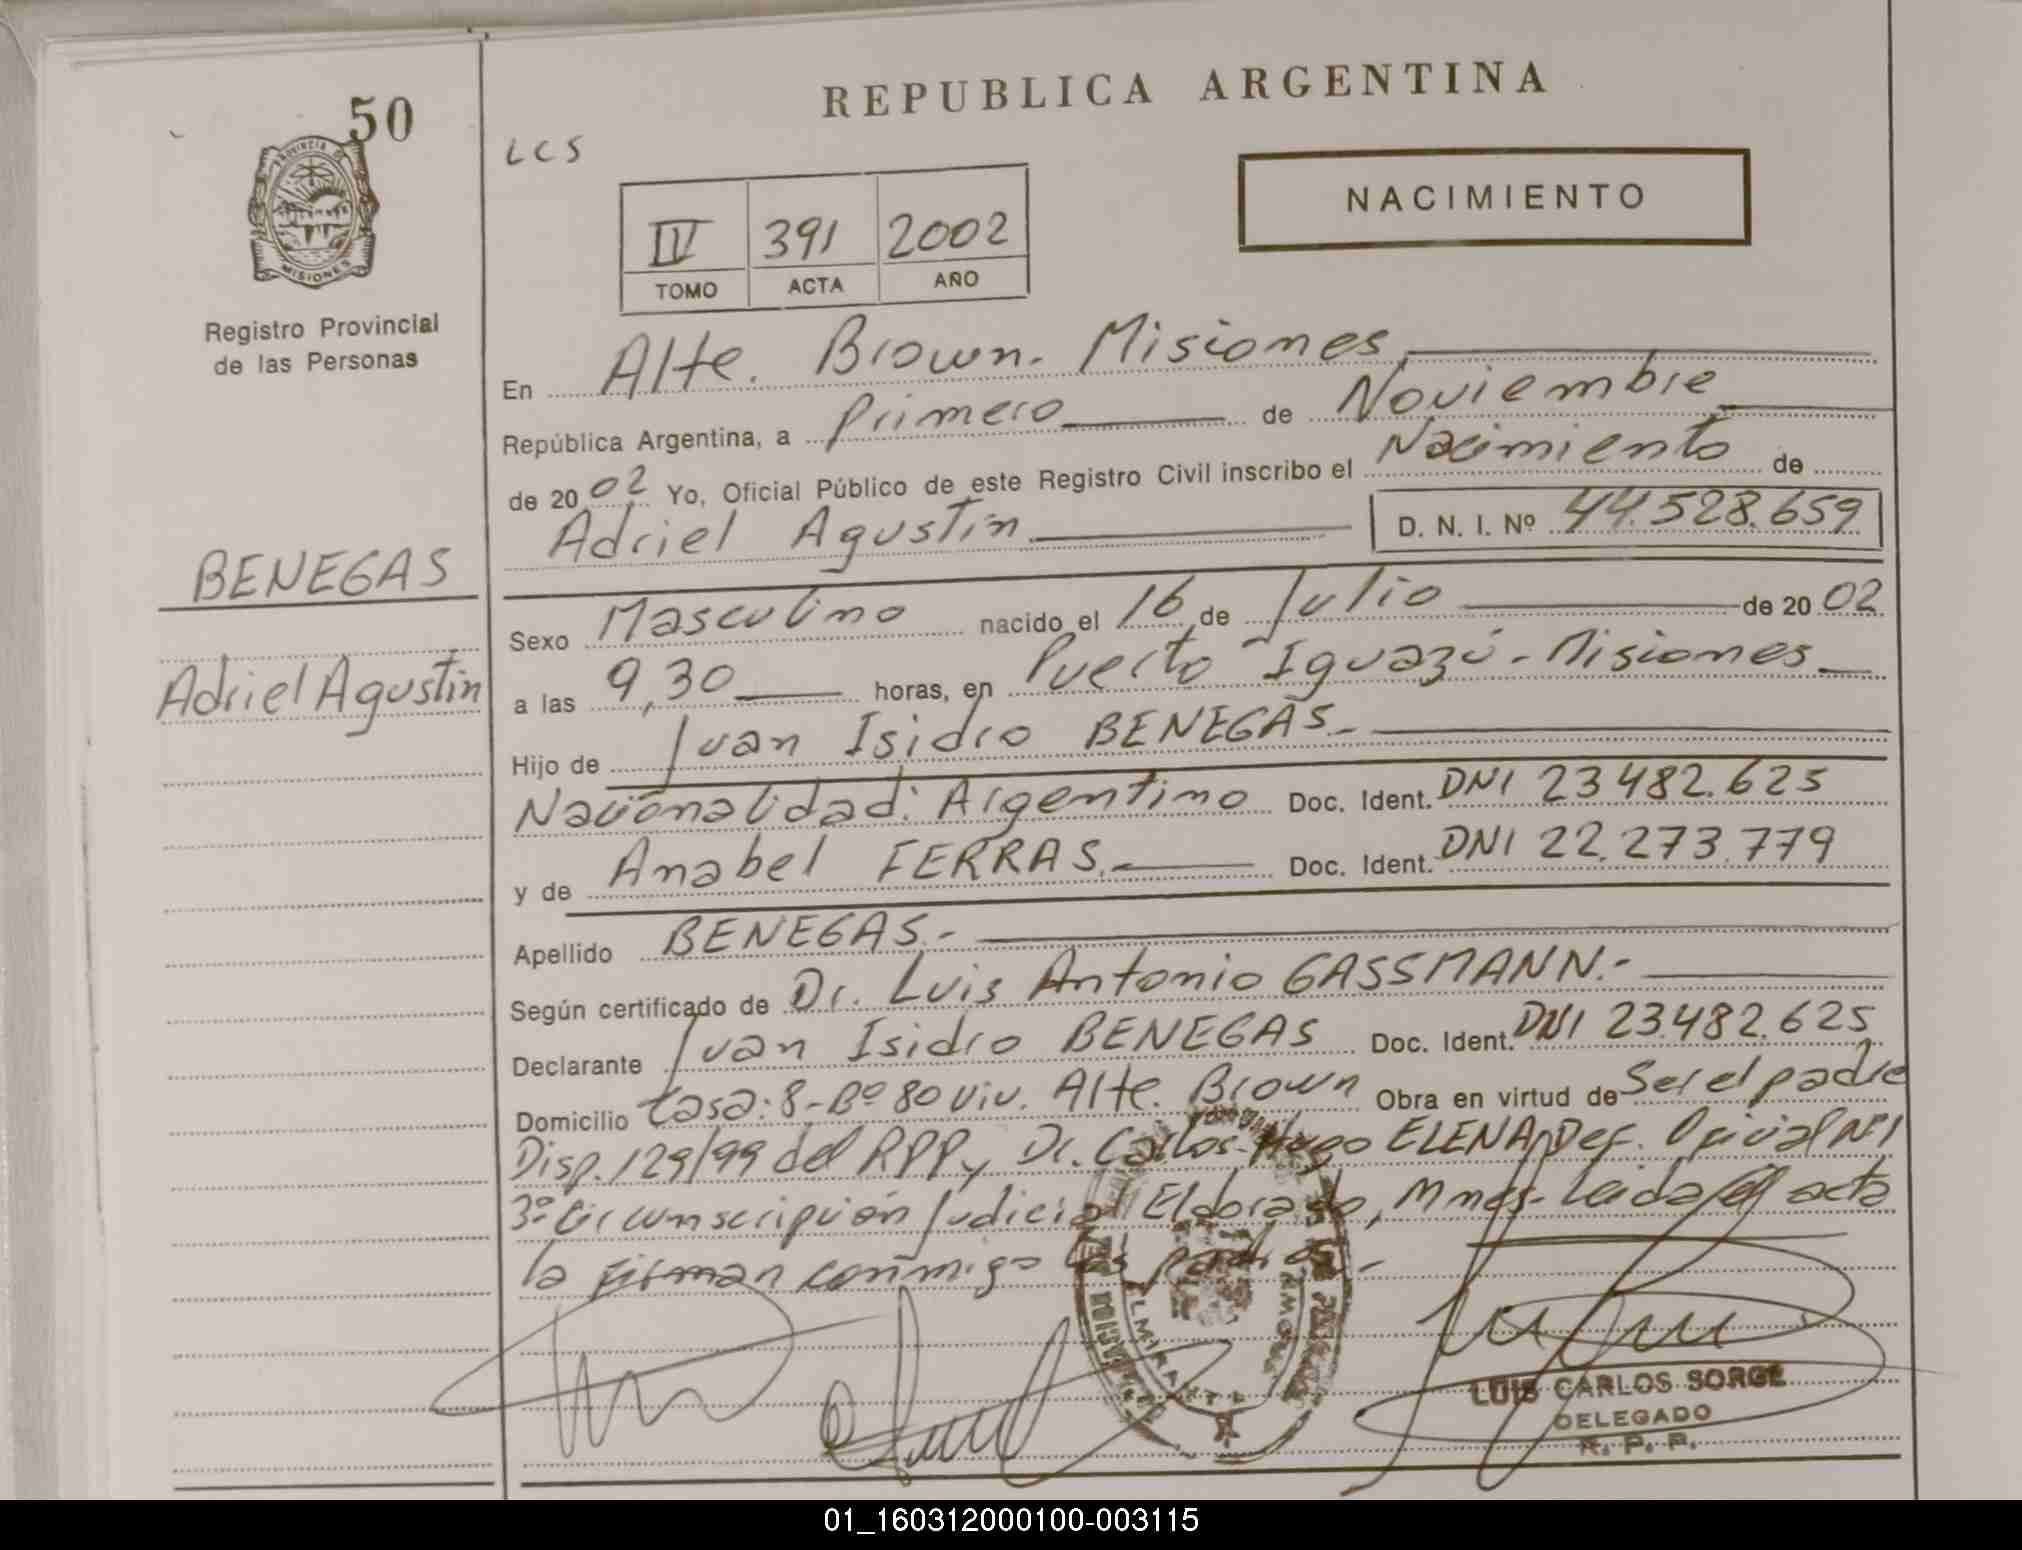 REPUBLICA ARGENTINA
50
LCS
NACIMIENTO
PROVINCIA DE
MISIONES
IV 391 2002
TOMO ACTA AÑO
Registro Provincial
de las Personas
En Alte. Brown. Misiones
República Argentina, a primero de Noviembre
de 2002 Yo, Oficial Público de este Registro Civil inscribo el Nacimiento de
Adriel Agustín D. N. I. Nº 44.528.659
BENEGAS
Adriel Agustín
Sexo Masculino nacido el 16 de Julio de 2002
a las 9,30 horas, en Puerto Iguazú - Misiones
Hijo de Juan Isidro BENEGAS.-
Nacionalidad: Argentino Doc. Ident. DNI 23482.625
y de Anabel FERRAS.- Doc. Ident. DNI 22.273.779
Apellido BENEGAS.-
Según certificado de Dr. Luis Antonio GASSMANN.-
Declarante Juan Isidro BENEGAS Doc. Ident. DNI 23.482.625
Domicilio Casa: 8-Bº 80 Viv. Alte. Brown Obra en virtud de Ser el padre
Disp. 129/99 del RPP y Dr. Carlos Hugo ELENA, Def. Oficial Nº1
3º Circunscripción Judicial Eldorado, Mnes- Leida el acta
la firman conmigo los padres.-
ALMIRANTE BROWN
LUIS CARLOS SORGE
DELEGADO
R. P. P.
01_160312000100-003115